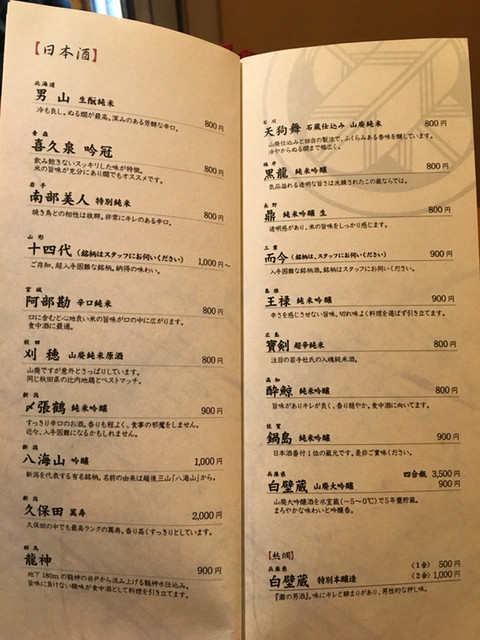 【日本酒】
北海道
男山 生酛純米 800円
冷も良し。ぬる燗が最高。深みのある芳醇な辛口。
青森
喜久泉 吟冠 800円
飲み飽きないスッキリした味が特徴。
米の旨味が充分にあり燗でもオススメです。
岩手
南部美人 特別純米 800円
焼き鳥との相性は抜群。非常にキレのある辛口。
山形
十四代（銘柄はスタッフにお伺いください） 1,000円~
ご存知、超入手困難な銘柄。納得の味わい。
宮城
阿部勘 辛口純米 800円
口に含むと心地良い米の旨味が口の中に広がります。
食中酒に最適。
秋田
刈穂 山廃純米原酒 800円
山廃ですが意外とさっぱりしています。
同じ秋田県の比内地鶏とベストマッチ。
新潟
〆張鶴 純米吟醸 900円
すっきり辛口のお酒。香りも程よく、食事の邪魔をしません。
近々、入手困難になるかもしれません。
新潟
八海山 吟醸 1,000円
新潟を代表する有名銘柄。名前の由来は越後三山「八海山」から。
新潟
久保田 萬寿 2,000円
久保田の中でも最高ランクの萬寿。香り高くすっきりとしています。
群馬
龍神 900円
地下180mの龍神の井戸から汲み上げる龍神水仕込み。
旨味に負けない酸味が食中酒として料理を引き立てます。
石川
天狗舞 石蔵仕込み 山廃純米 800円
山廃仕込みと独自の製法で、ふくらみある香味を醸しています。
冷やからぬる燗まで幅広く。
福井
黒龍 純米吟醸 800円
気品溢れる透明な旨さは洗練されたこの蔵ならでは。
長野
鼎 純米吟醸 生 800円
透明感があり、米の旨味をしっかり感じます。
三重
而今（銘柄は、スタッフにお伺いください） 900円
入手困難な銘柄酒。銘柄はスタッフにお伺いください。
島根
王祿 純米吟醸 900円
辛さを感じさせない旨味、切れ味よく料理を選ばず引き立てます。
広島
寶剣 超辛純米 800円
注目の若手杜氏の入魂純米酒。
高知
酔鯨 純米吟醸 800円
旨味がありキレが良く、香り穏やか。食中酒に向いてます。
佐賀
鍋島 純米吟醸 900円
日本酒番付1位の蔵元です。是非ご賞味ください。
兵庫県 四合瓶 3,500円
白壁蔵 山廃大吟醸 900円
山廃大吟醸酒を氷室蔵（−5~0℃）で5年甕貯蔵。
まろやかな味わいと吟醸香。
【熱燗】
兵庫県 〈1合〉 500円
白壁蔵 特別本醸造 〈2合〉 1,000円
『灘の男酒』。味にキレと締まりがあり、男性的な押し味。